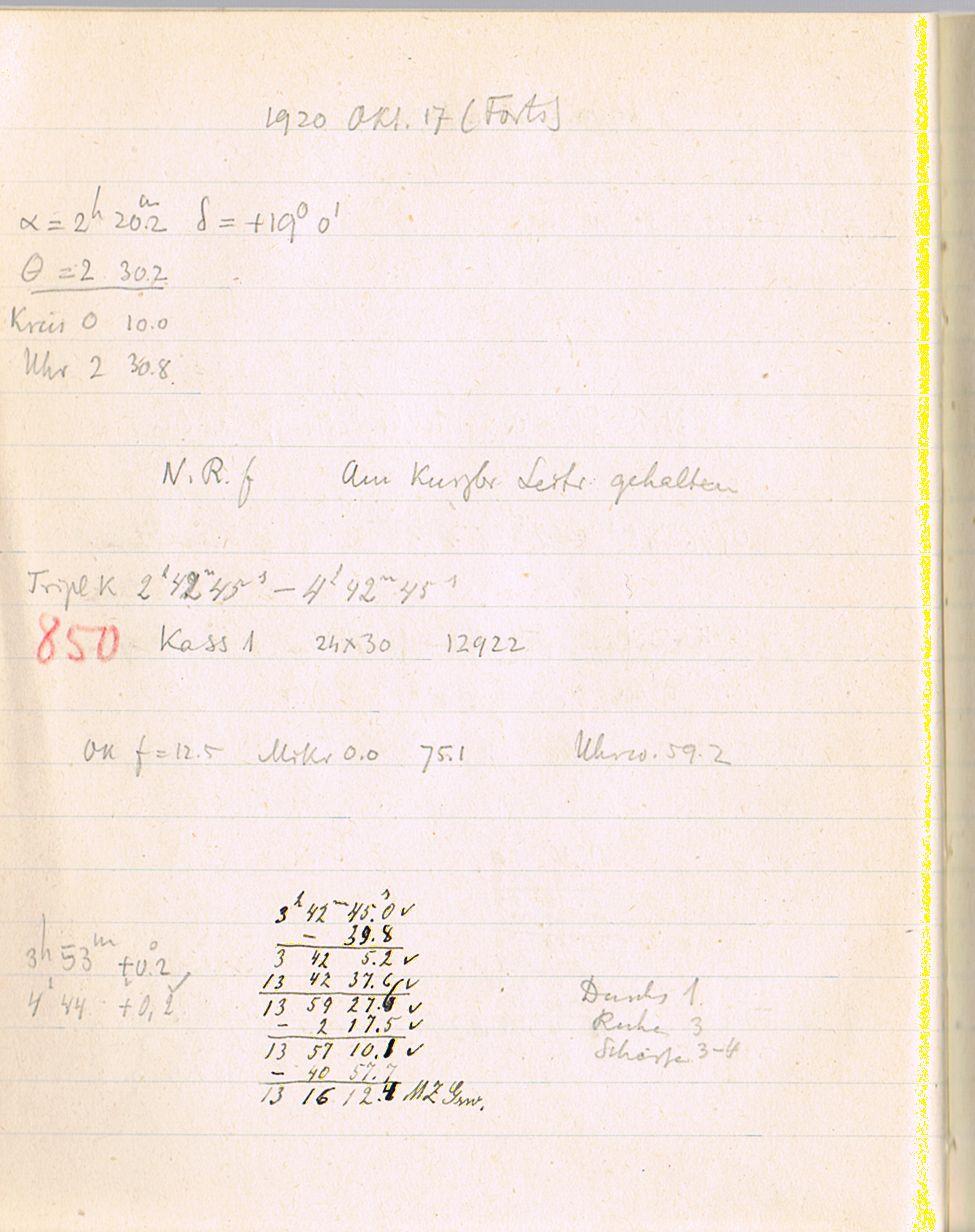 1920 Okt. 17 (Forts)
α = 2h 20.2m δ = +19° 0'
θ = 2 30.2
Kreis 0 10.0
Uhr 2 30.8
N.R. f Am Kurzbr Leitr. gehalten
Triplek 2h 42m 45s – 4h 42m 45s
850 Kass 1 24x30 12922
Ok f = 12.5 Mikr 0.0 75.1 Uhrw. 59.2
3h 42m 45.0s ✓
– 39.8
3 42 5.2 ✓
13 42 37.6 ✓
13 59 27.6 ✓
– 2 17.5 ✓
13 57 10.1 ✓
– 40 57.7
13 16 12.4 MZ Grw.
3h 53m +0.2°
4h 44 +0,2 ✓
Durchs 1
Ruhe 3
Schärfe 3-4